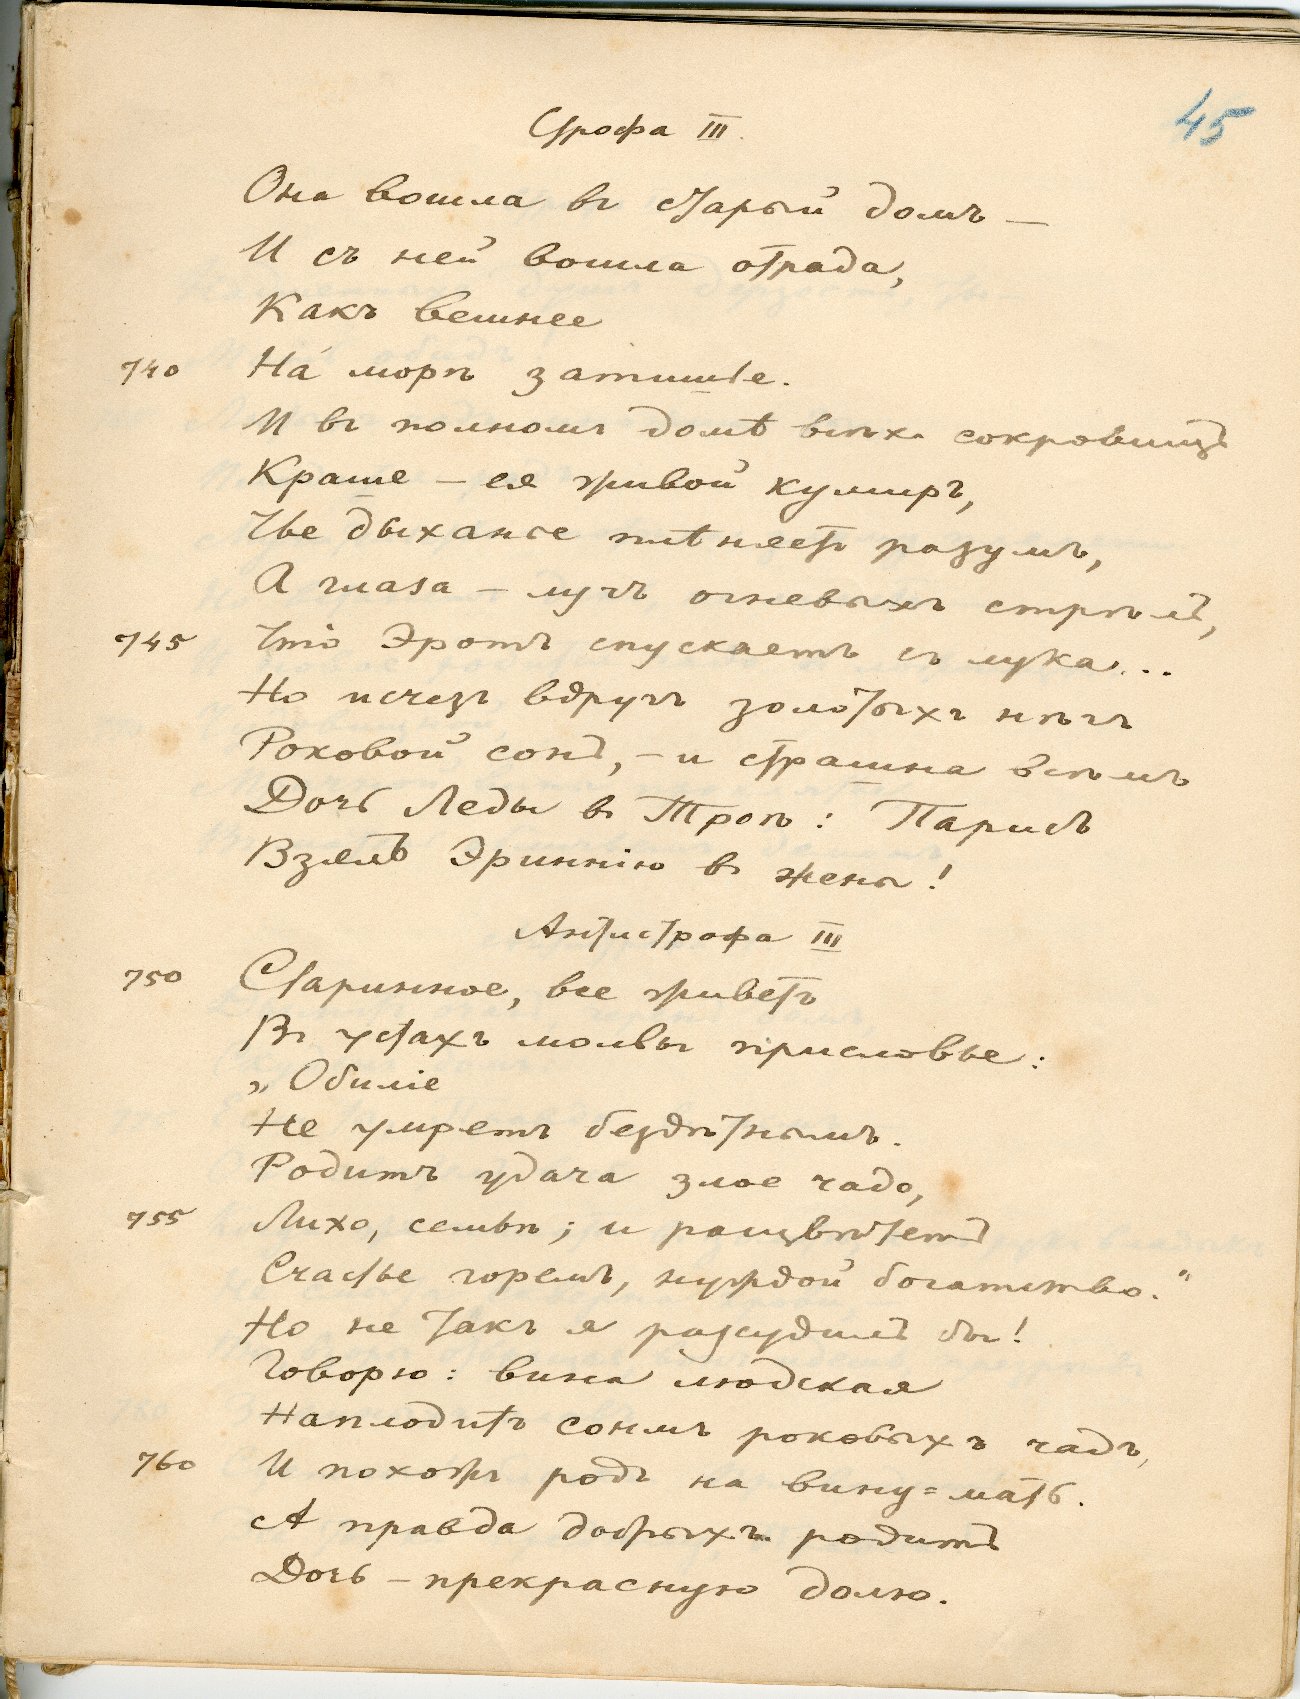 45
Строфа III.
Она вошла въ старый домъ —
И съ ней вошла отрада,
Какъ вешнее
740 На́ морѣ затишье.
И въ полномъ домѣ всѣхъ сокровищъ
Краше — ея живой кумиръ,
Чье дыханье плѣняетъ разумъ,
А глаза — лучъ огневыхъ стрѣлъ,
745 Что Эротъ спускаетъ съ лука...
Но исчезъ вдругъ золотыхъ нѣгъ
Роковой сонъ, — и страшна всѣмъ
Дочь Леды въ Троѣ: Парисъ
Взялъ Эриннію въ жены!
Антистрофа III
750 Старинное, все живетъ
Въ устахъ молвы присловье:
„Обиліе
Не умретъ бездѣтнымъ.
Родитъ удача злое чадо,
755 Лихо, семьѣ; и расцвѣтетъ
Счастье горемъ, нуждой богатство."
Но не такъ я разсудилъ бы!
Говорю: вина людская
Наплодитъ сонмъ роковыхъ чадъ,
760 И похожъ родъ на вину-мать.
А правда добрыхъ родитъ
Дочь — прекрасную долю.